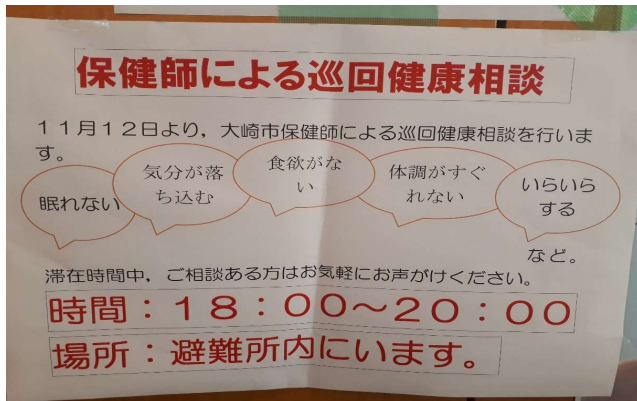 保健師による巡回健康相談
１１月１２日より，大崎市保健師による巡回健康相談を行いま
す。
眠れない
気分が落
ち込む
食欲がな
い
体調がすぐ
れない
いらいら
する
など。
滞在時間中，ご相談ある方はお気軽にお声がけください。
時間：１８：００～２０：００
場所：避難所内にいます。